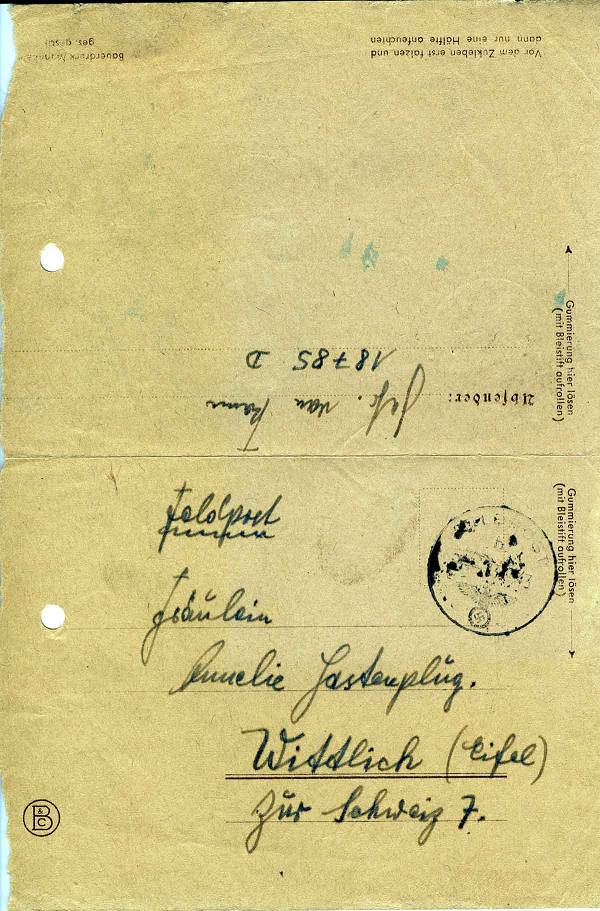 Vor dem Zukleben erst falzen und
dann nur eine Hälfte anfeuchten
Bauerdruck
ges. gesch
Gummierung hier lösen
(mit Bleistift aufrollen)
Absender:
Gefr. van
18785 D
Feldpost
Gummierung hier lösen
(mit Bleistift aufrollen)
FELDPOST
Fräulein
Annelie Hastenplug.
Wittlich (Eifel)
Zur Schweiz 7.
B & C